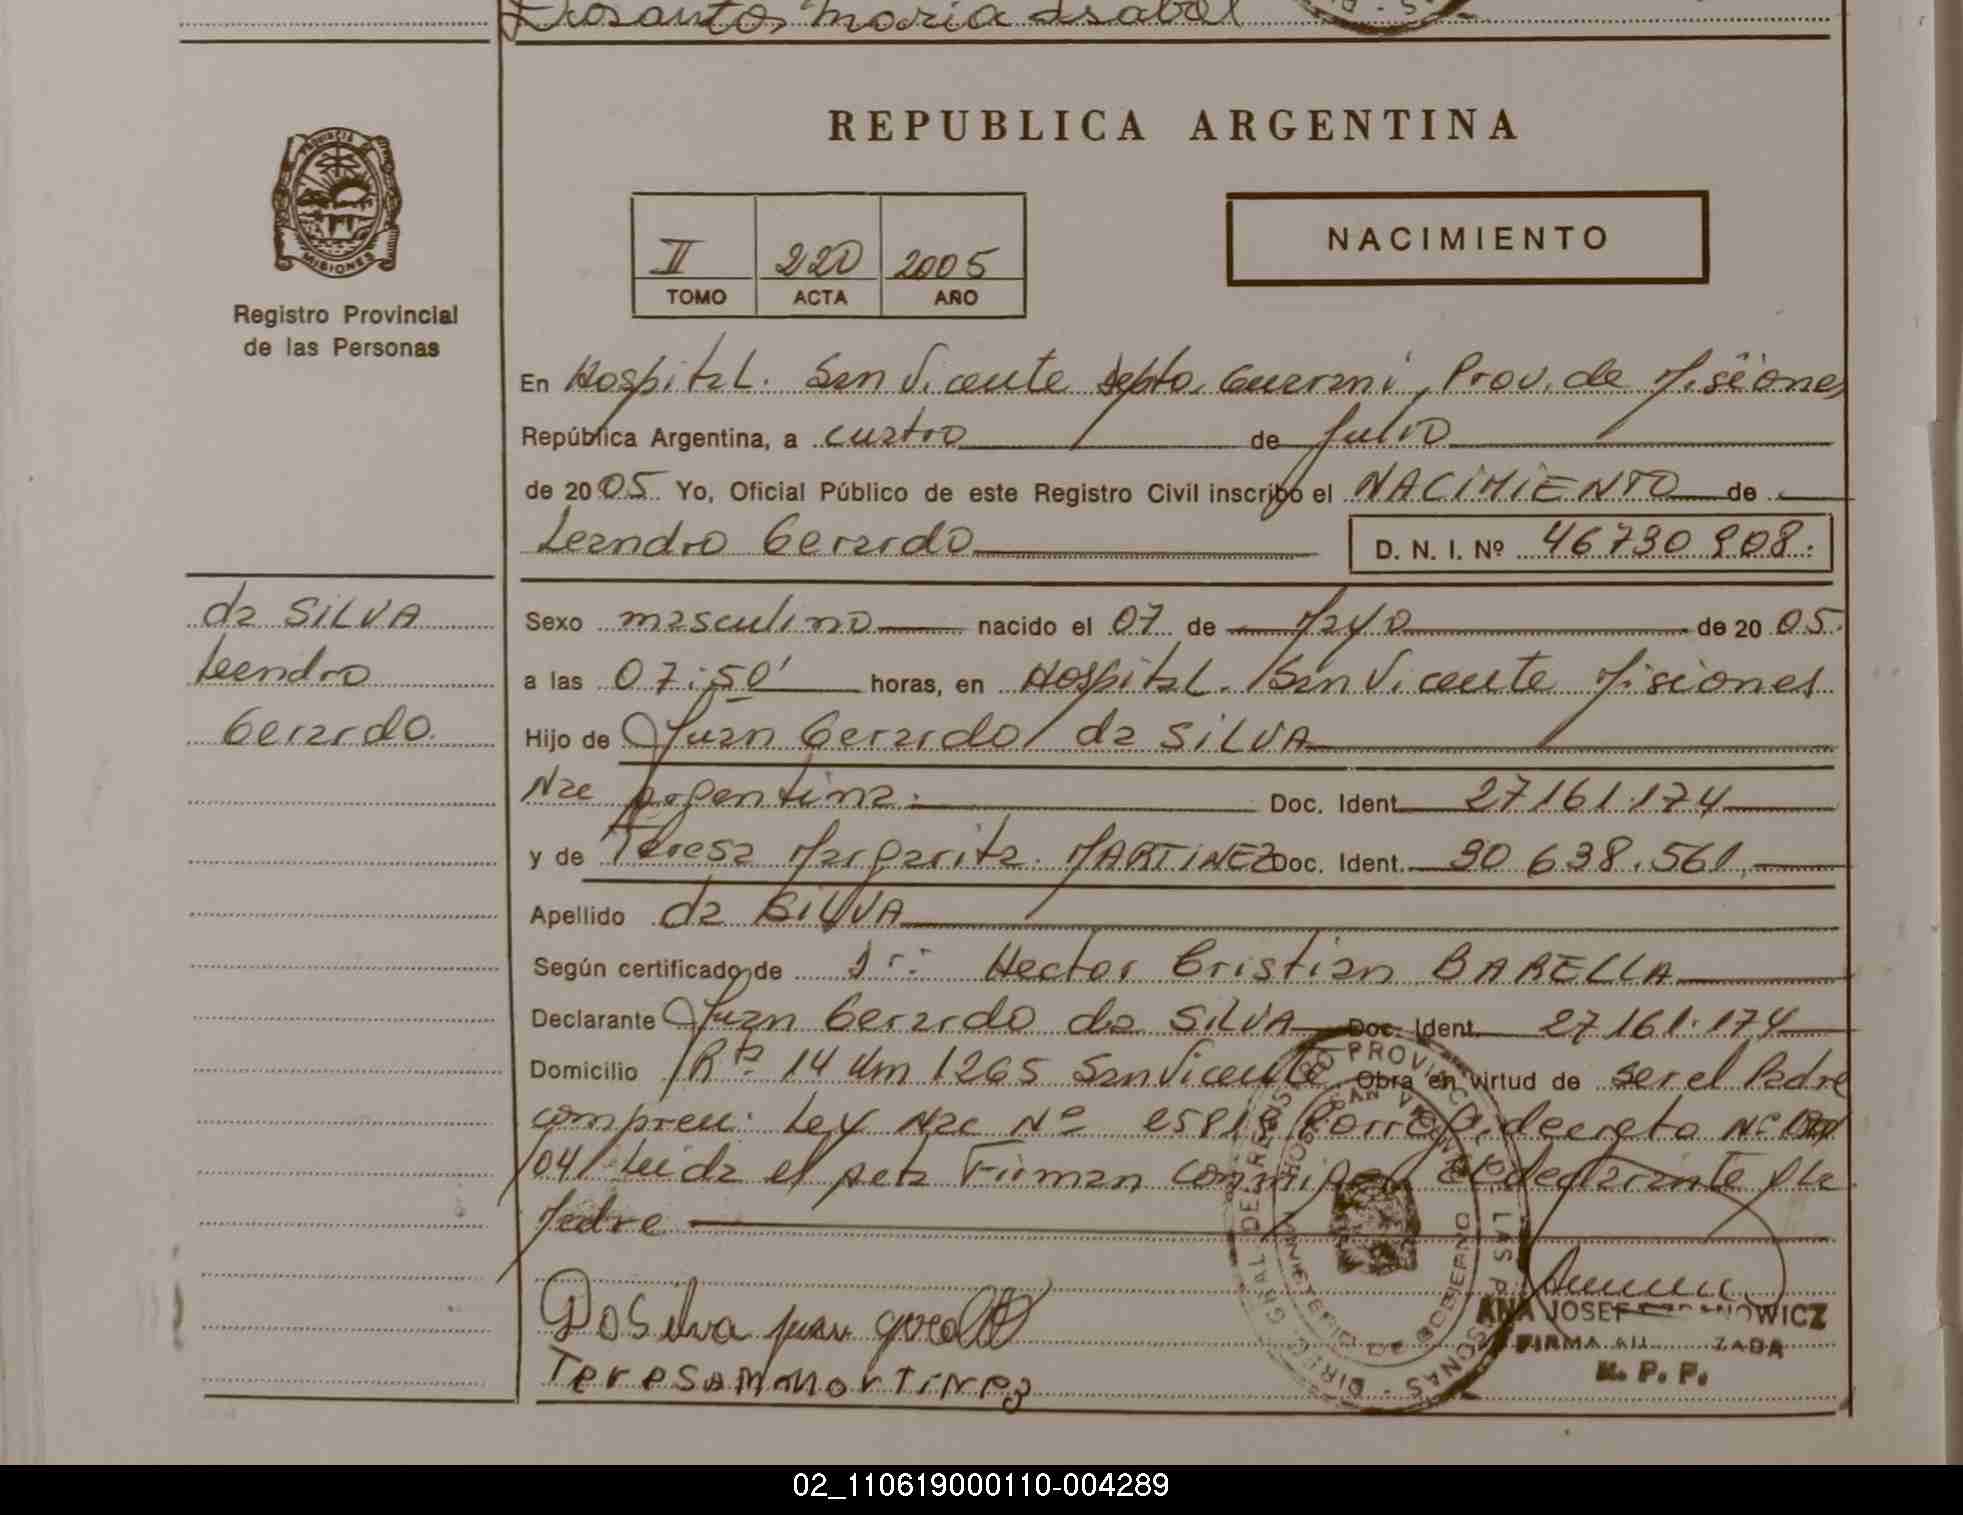 Dosantos, Maria Isabel
REPUBLICA ARGENTINA
PROVINCIA DE
MISIONES
Registro Provincial
de las Personas
II 220 2005
TOMO ACTA AÑO
NACIMIENTO
En Hospital. San Vicente Depto. Guarani, Prov. de Misiones
República Argentina, a cuatro de Julio
de 2005 Yo, Oficial Público de este Registro Civil inscribo el NACIMIENTO de
Leandro Gerardo D. N. I. Nº 46730908.
da SILVA
Leandro
Gerardo.
Sexo masculino nacido el 07 de Mayo de 2005.
a las 07:50' horas, en Hospital. San Vicente Misiones
Hijo de Juan Gerardo da SILVA
Nac Argentina. Doc. Ident. 27161.174
y de Teresa Margarita. MARTINEZ Doc. Ident. 30 638.561
Apellido da SILVA
Según certificado de Dr: Hector Cristian BARELLA
Declarante Juan Gerardo da SILVA Doc. Ident. 27161.174
Domicilio Rta 14 Km 1265 San Vicente Obra en virtud de ser el Padre
Ley Nac Nº 25818 decreto Nº
/04 Leida el acta Firman conmigo el declarante y la
Madre
Da Silva juan
Teresa M Martinez
ANA JOSEF
FIRMA
M. P. P.
02_110619000110-004289